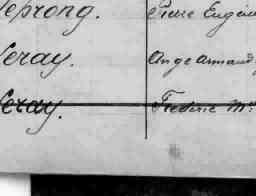 Leprong. Pierre Eugène
Leray. Ange Armand
Leray. Frederic M